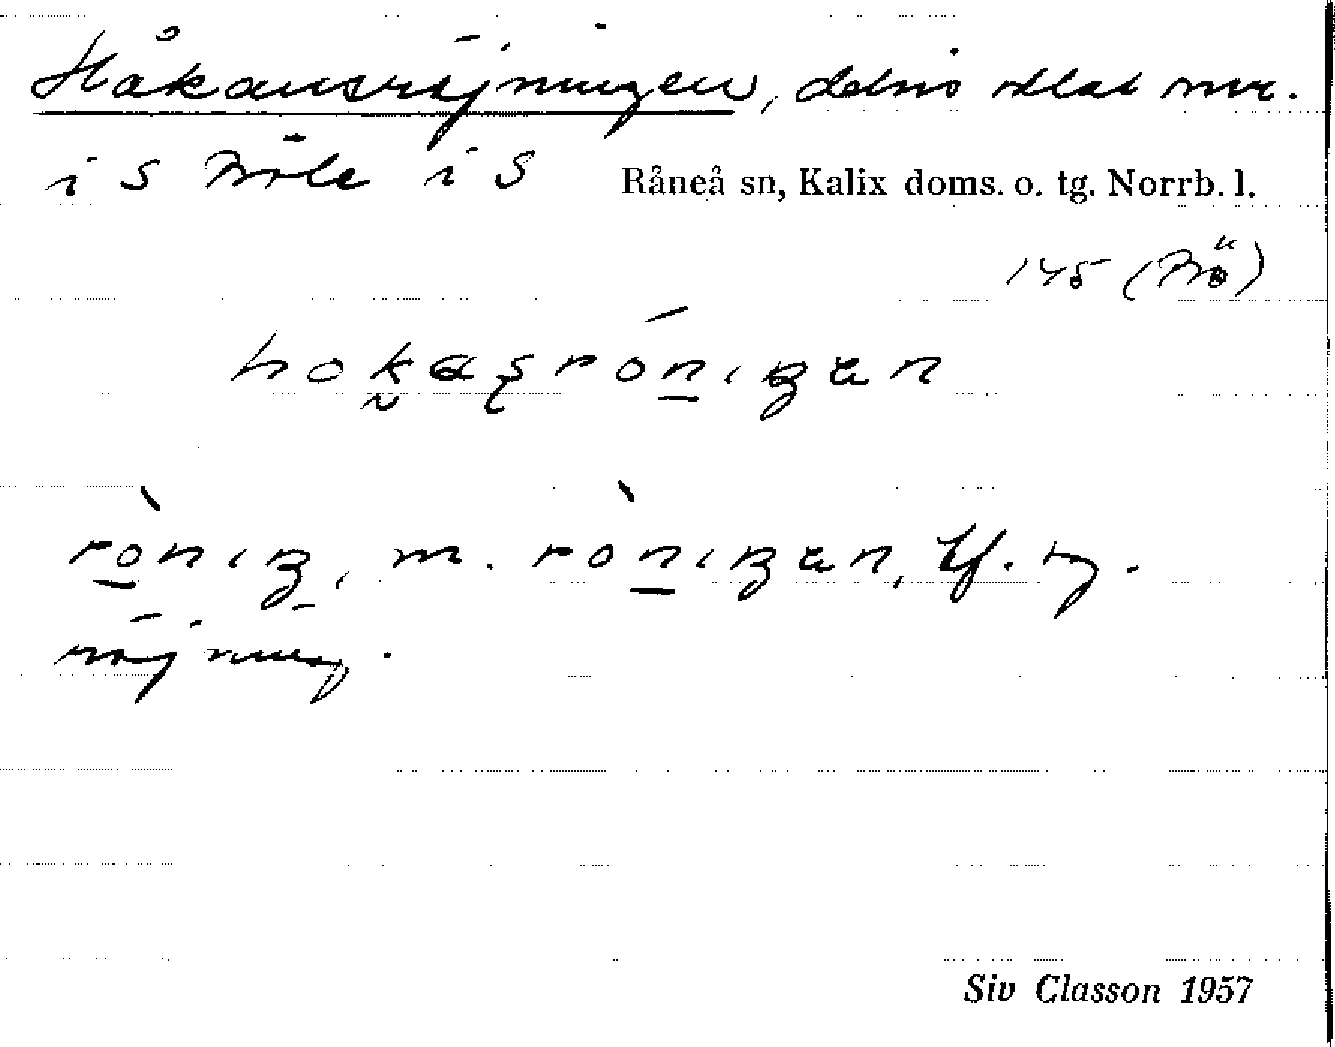 Håkansröjningen, delvis odlat omr.
i S Böle i S Råneå sn, Kalix doms. o. tg. Norrb. l.
145 (Bö)
hokasróniŋen
ròniŋ, m. ròniŋen, bf. sg.
röjning.
Siv Classon 1957